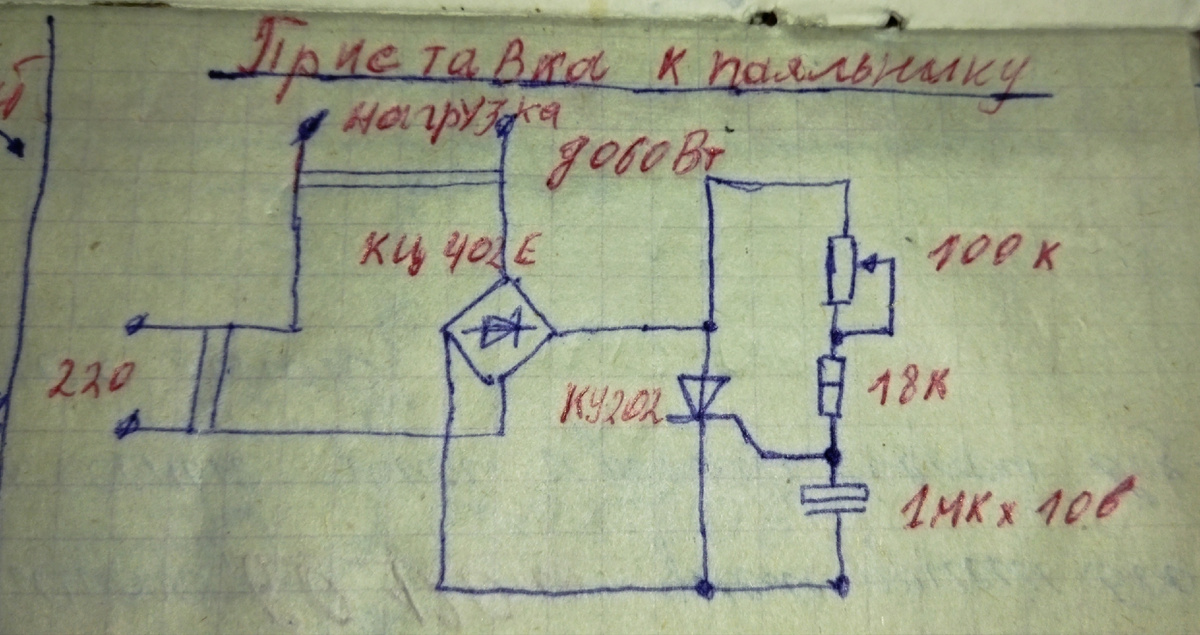 Приставка к паяльнику
нагрузка
до 60 Вт
КЦ 402 Е
100 к
220
КУ202
18 к
1 мк х 10 в